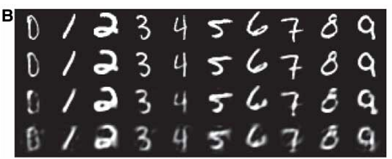 B
0 1 2 3 4 5 6 7 8 9
0 1 2 3 4 5 6 7 8 9
0 1 2 3 4 5 6 7 8 9
0 1 2 3 4 5 6 7 8 9